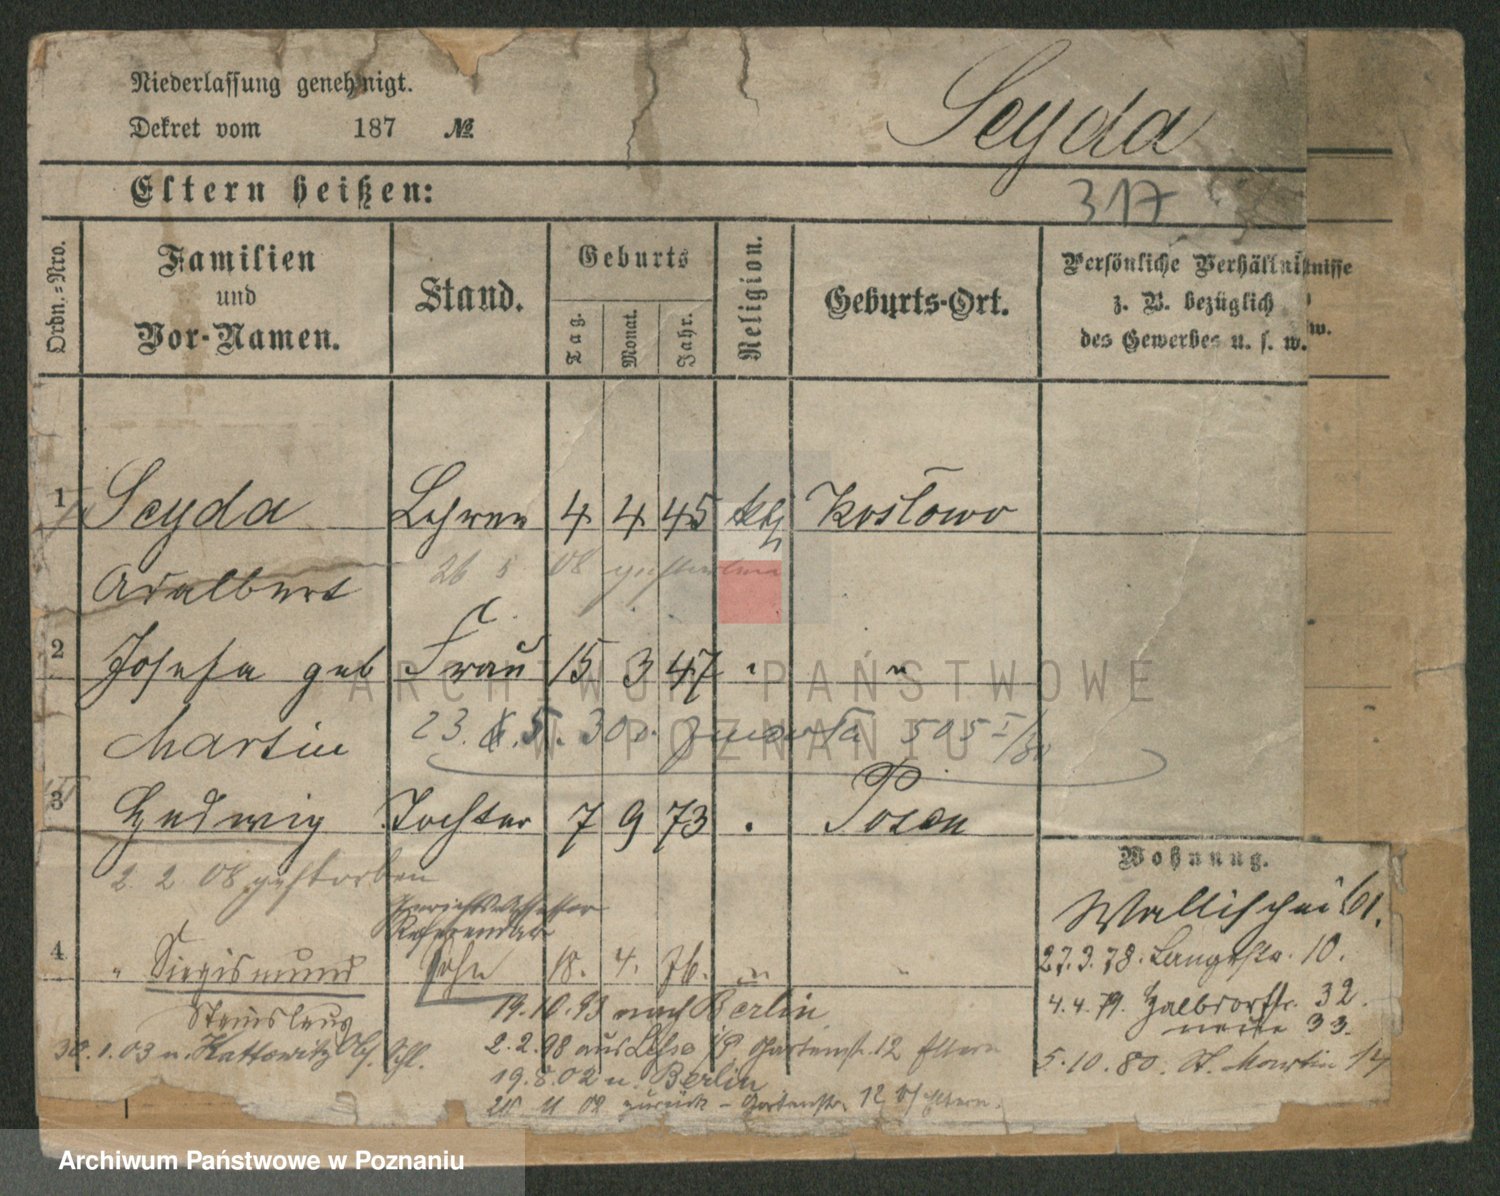 Niederlassung genehmigt.
Seyda
Dekret vom 187 №
Eltern heißen:
317
Ordn.-Nro.
Familien und Vor-Namen.
Stand.
Geburts
Tag.
Monat.
Jahr.
Religion.
Geburts-Ort.
Persönliche Verhältnisse
z. B. bezüglich
des Gewerbes u. s. w.
1 Seyda Lehrer 4 4 45 kth Koslowo
Adalbert 26 5 08 gestorben
2 Josefa geb Frau 15 3 47 " "
Martin 23. 5. 30 zmarła 505 I/30
3 Hedwig Tochter 7 9 73 " Posen
2 2 08 gestorben
Wohnung.
Wallischei 61.
Gerichtsassessor
Referendar
4 " Siegismund Sohn 18. 4. 76. " "
Stanislaus
27.3.78. Langestr. 10.
19.10.93 nach Berlin
4.4.79. Halbdorfstr. 32.
neue 33.
30.1.03 n. Kattowitz Ob. Schl.
2.2.98 aus Lissa i/P Gartenstr. 12 Eltern
5.10.80. St. Martin 14
19.8.02 n. Berlin
11 02 zurück - Gartenstr 12 b/ Eltern.
ARCHIWUM PAŃSTWOWE
W POZNANIU
Archiwum Państwowe w Poznaniu